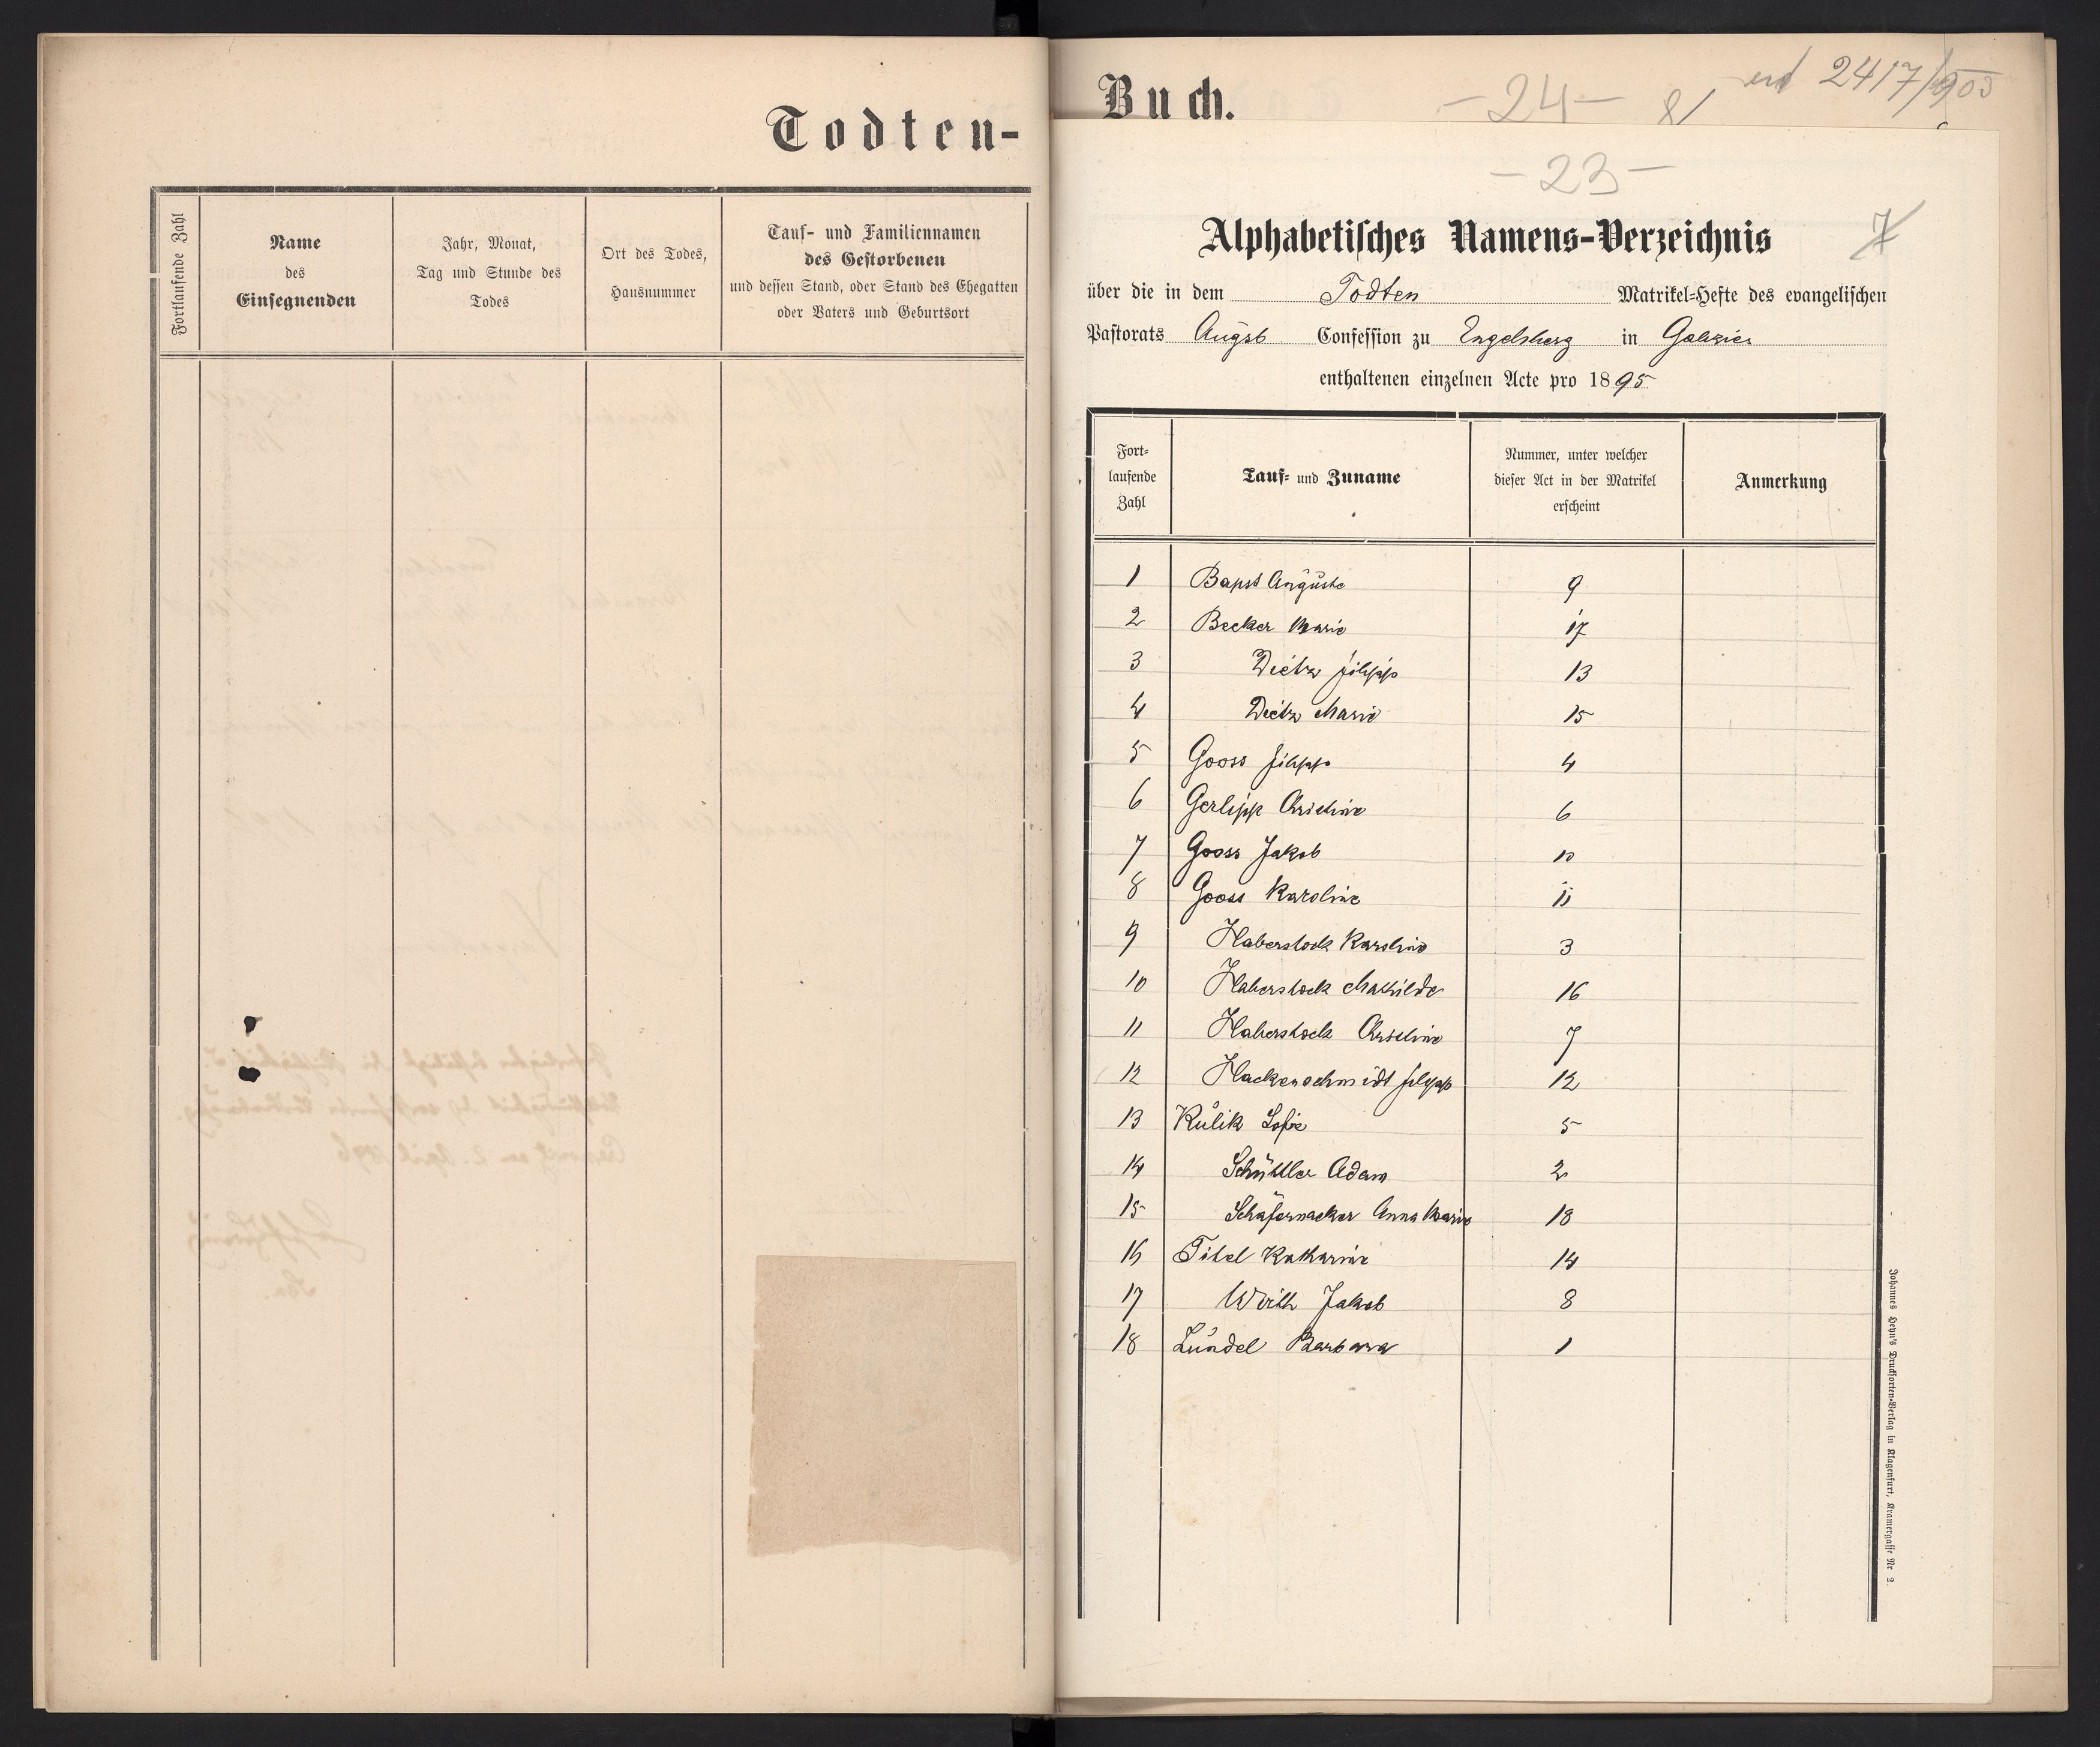 Todten-
Fortlaufende Zahl
Name
des
Einsegnenden
Jahr, Monat,
Tag und Stunde des
Todes
Ort des Todes,
Hausnummer
Tauf- und Familiennamen
des Gestorbenen
und dessen Stand, oder Stand des Ehegatten
oder Vaters und Geburtsort
Buch.
-24-
2417/903
-23-
7
Alphabetisches Namens-Verzeichnis
über die in dem Todten Matrikel-Hefte des evangelischen
Pastorats Augsb Confession zu Engelsberg in Galizien
enthaltenen einzelnen Acte pro 1895
Fort-
laufende
Zahl
Tauf- und Zuname
Nummer, unter welcher
dieser Act in der Matrikel
erscheint
Anmerkung
1 Bapst Auguste 9
2 Becker Marie 17
3 Dietz Filipp 13
4 Dietz Marie 15
5 Gooss Filipp 4
6 Gerlipp Christine 6
7 Gooss Jakob 10
8 Gooss Karoline 11
9 Haberstock Karoline 3
10 Haberstock Mathilde 16
11 Haberstock Christine 7
12 Hackenschmidt Filipp 12
13 Kulik Sofie 5
14 Schüttler Adam 2
15 Schäfernacker Anna Marie 18
16 Titel Katharine 14
17 Wirth Jakob 8
18 Zundel Barbara 1
Johannes Heyn's Drucksorten-Verlag in Klagenfurt, Kramergasse Nr 2.